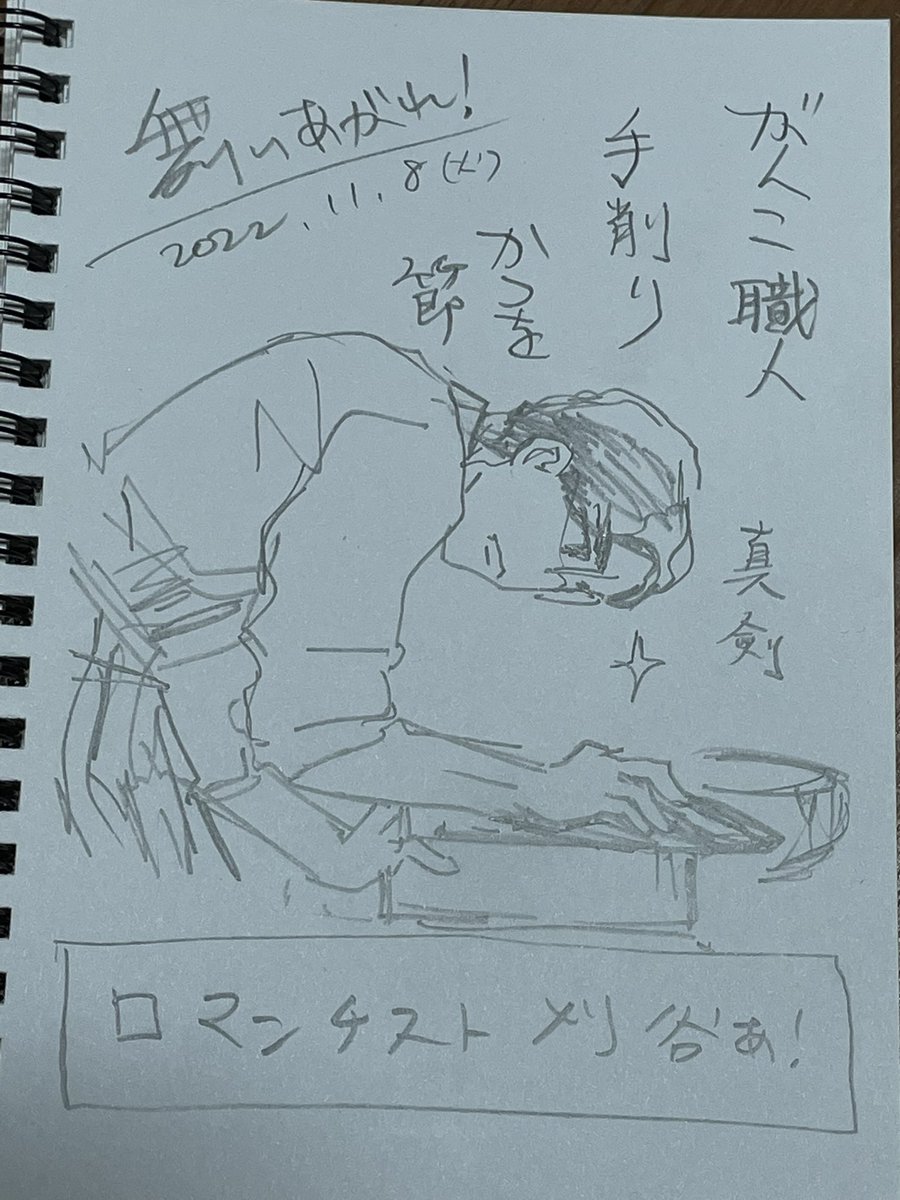 舞いあがれ!
2022.11.8(火)
がんこ職人
手削り
かつを
節
真剣
ロマンチスト 刈谷ぁ!